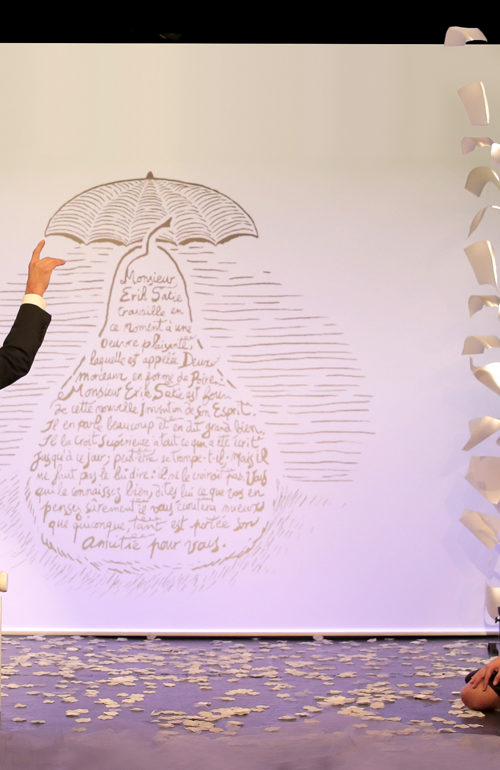 Monsieur
Erik Satie
travaille en
ce moment à une
oeuvre plaisante,
laquelle est appelée Deux
morceaux en forme de Poire.
Monsieur Erik Satie est
de cette nouvelle Invention de son Esprit.
Il en parle beaucoup et en dit grand bien.
Il la croit Supérieure à tout ce qui a été écrit
jusqu'à ce jour; peut être se trompe-t-il; Mais il
ne faut pas le lui dire: il ne le croirait pas. Vous
qui le connaissez bien, dites lui ce que vous en
pensez sûrement il vous écoutera mieux
que quiconque, tant est portée son
amitié pour vous.